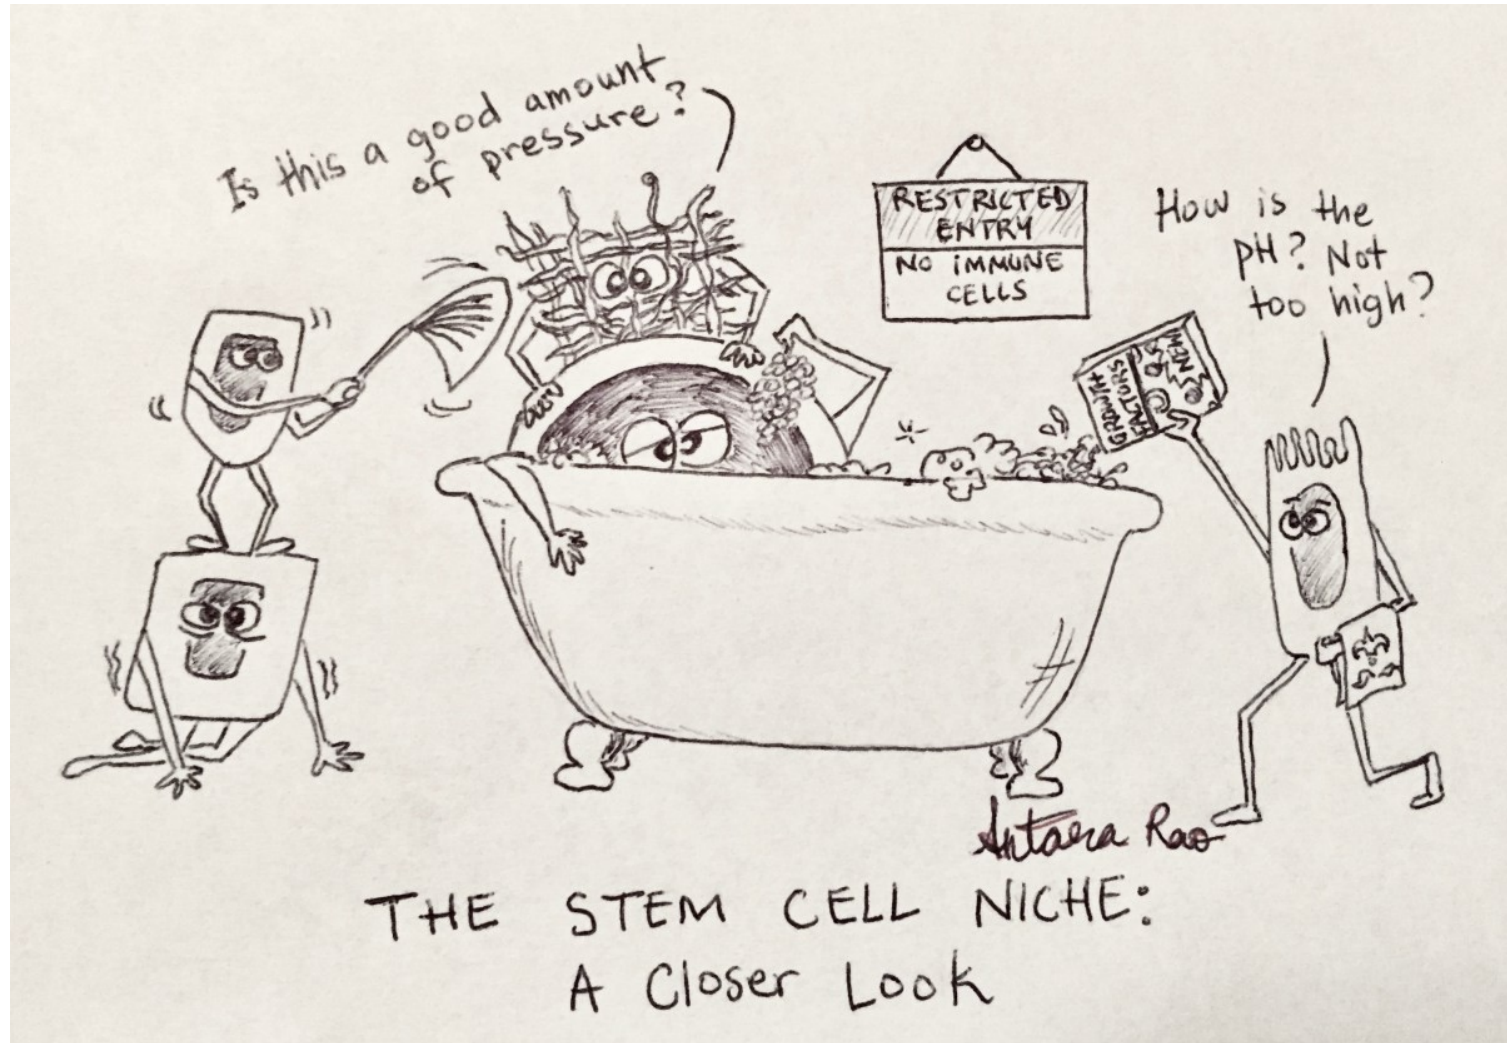 Is this a good amount
of pressure?
RESTRICTED
ENTRY
NO IMMUNE
CELLS
How is the
pH? Not
too high?
NEW
GROWTH
FACTORS
Antara Rao
THE STEM CELL NICHE:
A Closer Look